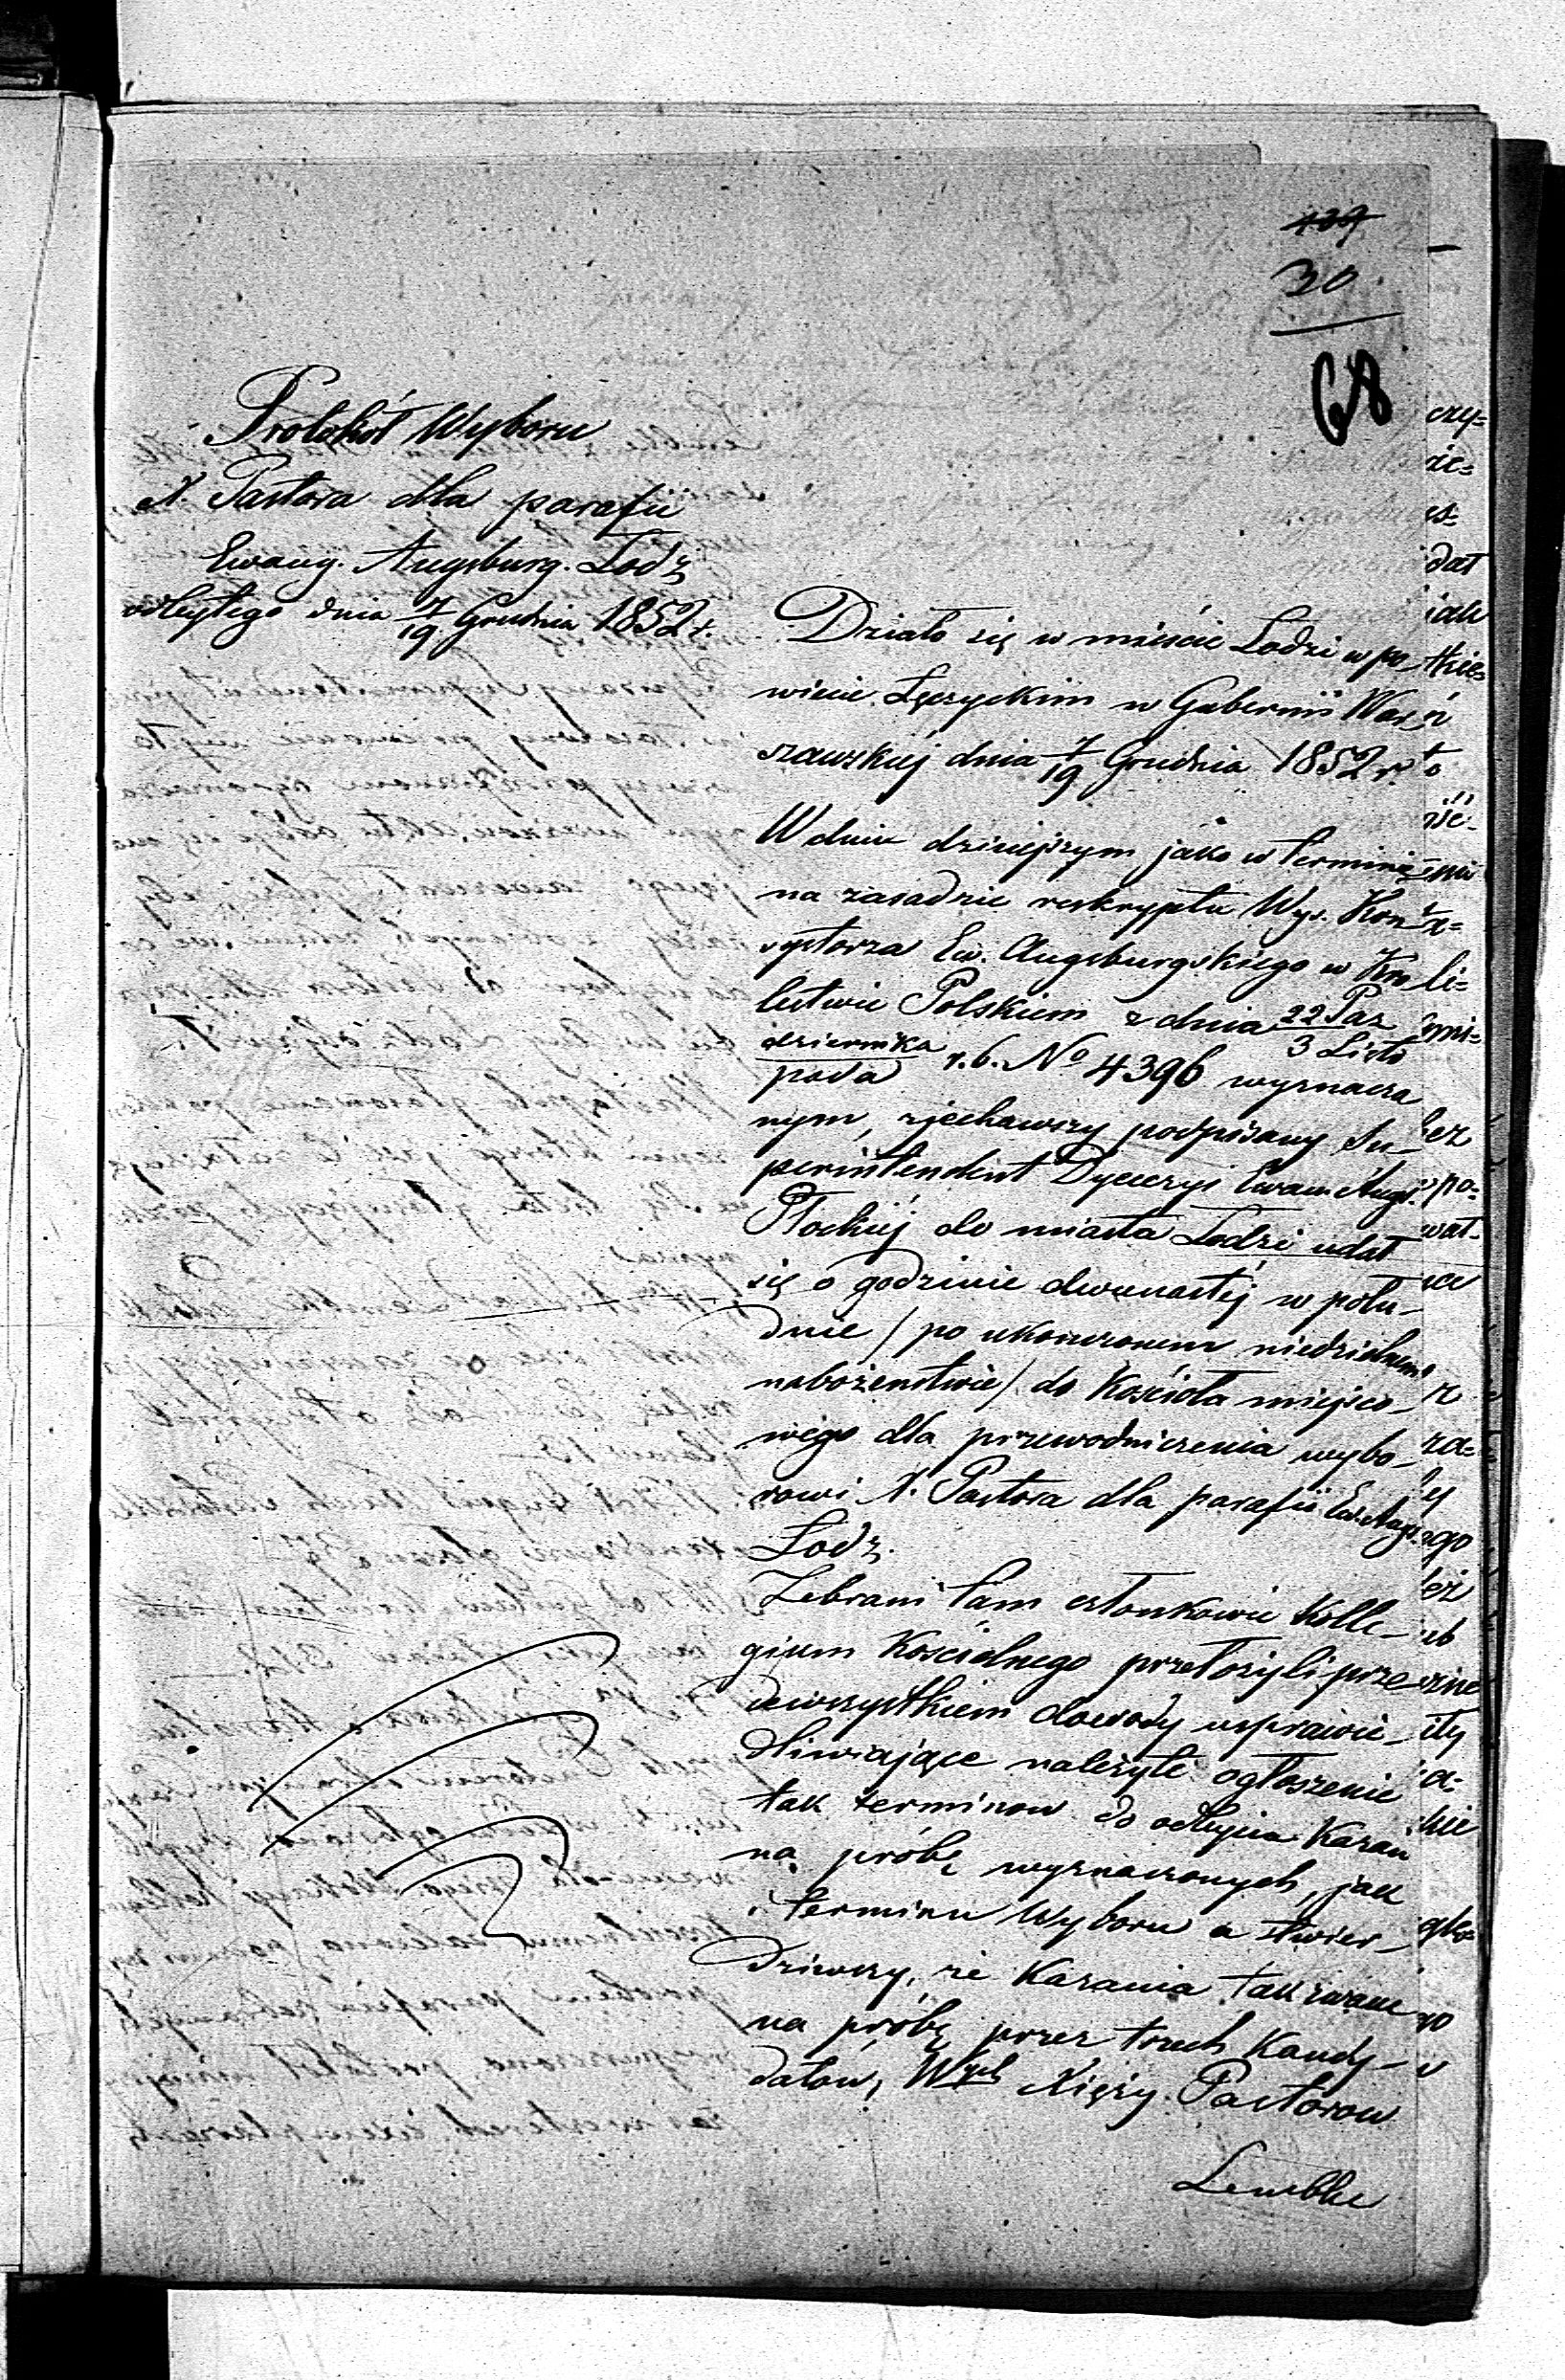 127
30
68
Protokół Wyboru
X. Pastora dla parafii
Ewang. Augsburg. Łodz
odbytego dnia 7/19 Grudnia 1852 r.
Działo się w mieście Łodzi w po-
wiecie Łęczyckim w Gubernii War-
szawskiej dnia 7/19 Grudnia 1852 r.
W dniu dzisiejszym jako w terminie
na zasadzie reskryptu Wys. Kon-
systorza Ew. Augsburgskiego w Kró-
lestwie Polskiem z dnia 22 Paz
dziernika / 3 Listo
pada r. b. No 4396 wyznaczo
nym, zjechawszy podpisany Su-
perintendent Dyecezyi Ewan. Augs.
Płockiej do miasta Łodzi udał
się o godzinie dwunastej w połu-
dnie / po ukonczonem niedzielnem
nabożenstwie / do Kościoła miejsco-
wego dla przewodniczenia wybo-
rowi X. Pastora dla parafii Ew. Augs.
Łodz.
Zebrani tam członkowie Kolle-
gium Kościelnego przełożyli prze
dewszystkiem dowody usprawie-
dliwiające należyte ogłoszenie
tak terminow do odbycia Kazań
na próbę wyznaczonych, jak
i terminu Wyboru a stwier-
dziwszy, że Kazania tak zwane
na próbę przez trzech Kandy-
datów, Wych Xięży Pastorow
Lembke